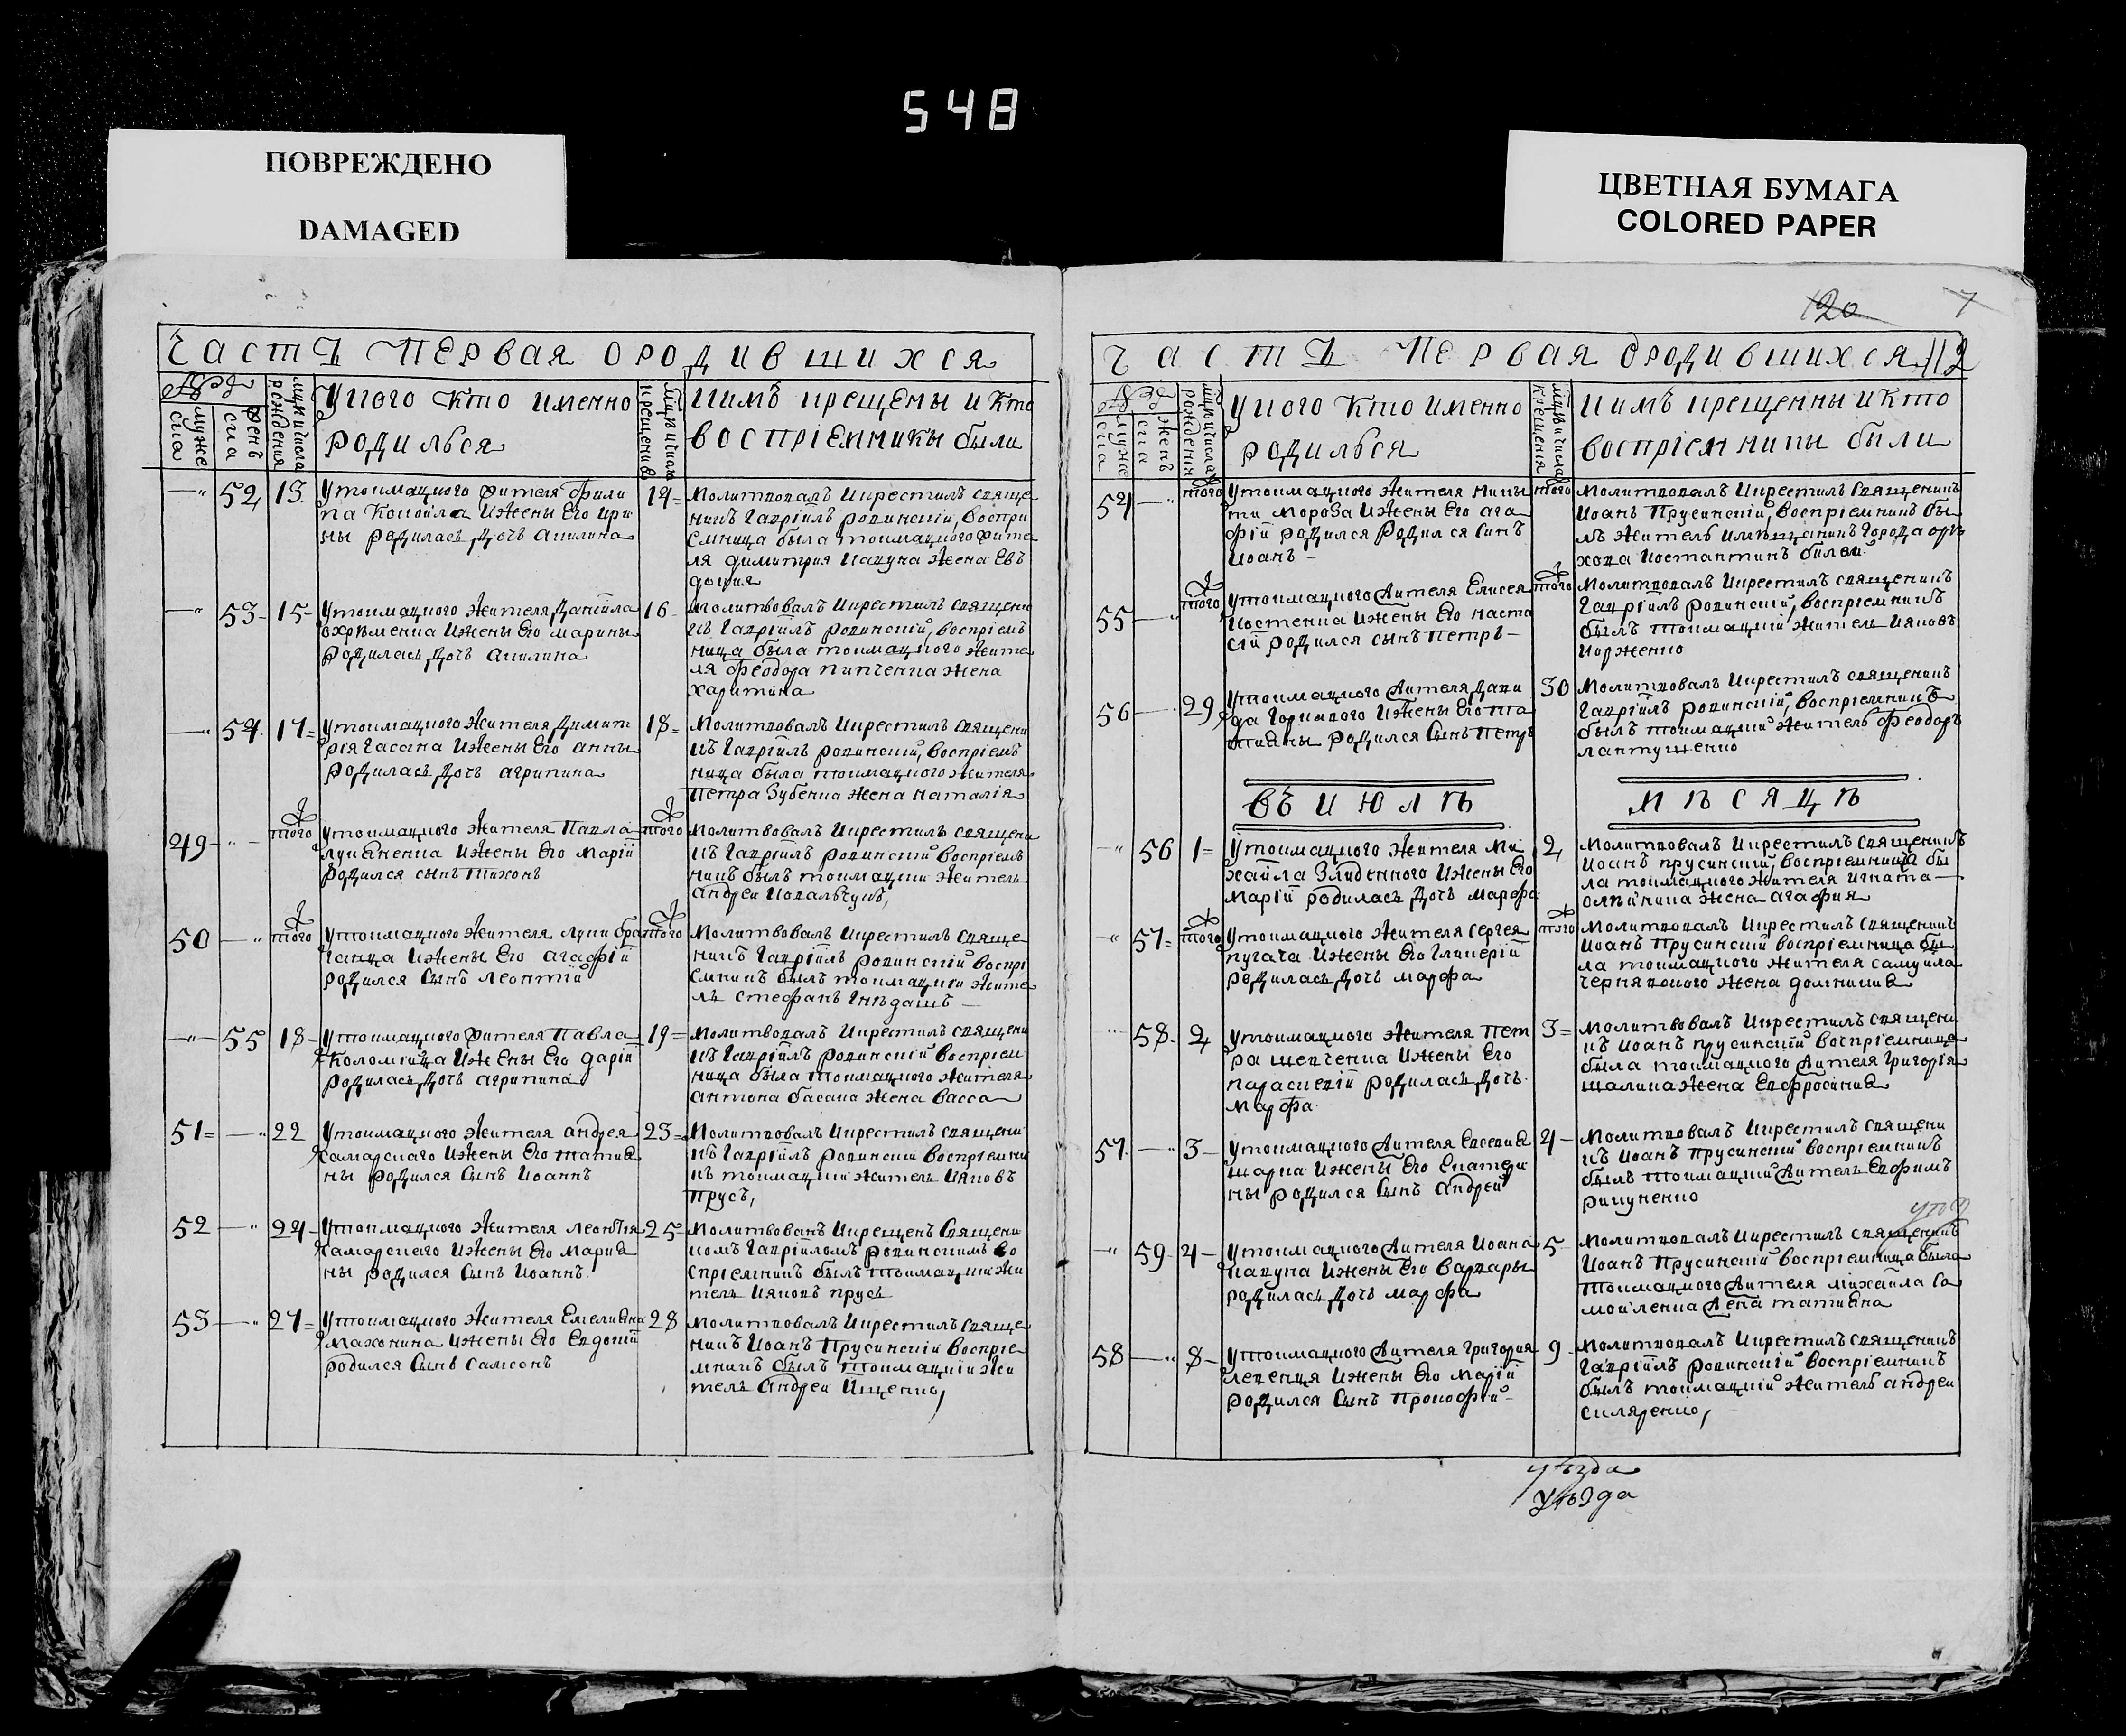 548
ПОВРЕЖДЕНО
DAMAGED
ЦВЕТНАЯ БУМАГА
COLORED PAPER
Часть Первая ородившихся
муже
ска
женъ
ска
рожденія
У кого кто именно
родился
крещения
кимъ крещены и кто
воспріемники были
52 13
У токмацкого жителя Фили
па и жены его Ири
ны родилась дочь Акилина
14
Молитвовалъ и крестилъ свяще
никъ Гавріилъ Ровинскій, воспри
емница была токмацкого жите
ля Димитрия Кавуна жена Ев
докия
53 15
У токмацкого жителя Даніила
Охрѣменка и жены его Марины
родилась дочь Акилина
16
Молитвовалъ и крестилъ священи
къ Гавріилъ Ровинскій, воспріем
ница была токмацкого жите
ля Феодора Пипченка жена
Харитина
54 17
У токмацкого жителя Димит
рія Гасана и жены его Анны
родилась дочь Агрипина
18
Молитвовалъ и крестилъ священи
къ Гавріилъ Ровинскій, воспріем
ница была токмацкого жителя
Петра Зубенка жена Наталія
49 того
У токмацкого жителя Павла
Лукяненка и жены его Маріи
родился сынъ Тихонъ
того
Молитвовалъ и крестилъ священи
къ Гавріилъ Ровинскій воспріем
никъ былъ токмацкии житель
Андреи Ковальчукъ,
50 того
У токмацкого жителя Луки Бра
гинца и жены его Агафіи
родился сынъ Леонтій
того
Молитвовалъ и крестилъ свяще
никъ Гавріилъ Ровинскій воспрі
емникъ былъ токмацкіи жите
ль Стефанъ Гнѣдашъ
55 18
У токмацкого жителя Павла
Коломійца и жены его Дарии
родилась дочь Агрипина
19
Молитвовалъ и крестилъ священи
къ Гавріилъ Ровинскій воспріем
ница была токмацкого жителя
Антона Басана жена Васса
51 22
У токмацкого жителя Андрея
Самарского и жены его Татия
ны родился сынъ Иоаннъ
23
Молитвовалъ и крестилъ священи
къ Гавріилъ Ровинскій воспріемни
къ токмацкій житель Ияковъ
Прусъ,
52 24
У токмацкого жителя Леонтія
Самарского и жены его Мария
ны родился сынъ Иоаннъ
25
Молитвованъ и крещенъ священи
комъ Гавріиломъ Ровинскимъ во
спріемникъ былъ токмацкии жи
тель Ияковъ Прусъ
53 27
У токмацкого жителя Емелияна
Махонина и жены его Евдокіи
родился сынъ Самсонъ
28
Молитвовалъ и крестилъ свяще
никъ Иоанъ Прусинскій воспріе
мникъ былъ токмацкій жи
тель Андреи Ищенко,
120 7
Часть Первая ородившихся 112
муже
ска
женъ
ска
рожденія
У кого кто именно
родился
крещенія
кимъ крещенны и кто
воспріемники были
54 того
У токмацкого жителя Ники
ти Мороза и жены его Ага
фіи родился родился синъ
Иоанъ
того
Молитвовалъ и крестилъ священикъ
Иоанъ Прусинскій, воспріемникъ бы
лъ житель и мѣщанинъ города Орѣ
хова Костантинъ
55 того
У токмацкого жителя Елисея
Костенка и жены его Наста
сіи родился сынъ Петръ
того
Молитвовалъ и крестилъ священикъ
Гавріилъ Ровинскій, воспріемникъ
былъ токмацкій житель Ияковъ
Корженко
56 29
У токмацкого жителя Дави
да и жены его Та
тияны родился сынъ Петръ
30
Молитвовалъ и крестилъ священикъ
Гавріилъ Ровинскій, воспріемникъ
былъ токмацкій житель Феодоръ
Лантушенко
въ июлѣ мѣсяцѣ
56 1
У токмацкого жителя Ми
хаила Злиденного и жены его
Маріи родилась дочь Марфа
2
Молитвовалъ и крестилъ священикъ
Иоанъ Прусинскій, воспріемница бы
ла токмацкого жителя Игната
жена Агафия
57 того
У токмацкого жителя Сергея
Пугача и жены его Гликеріи
родилась дочь Марфа
того
Молитвовалъ и крестилъ священикъ
Иоанъ Прусинскій воспріемница бы
ла токмацкого жителя Самуила
Чернявского жена Домникия
58 2
У токмацкого жителя Пет
ра Шевченка и жены его
Параскевіи родилась дочь
Марфа
3
Молитвовалъ и крестилъ священи
къ Иоанъ Прусинскій воспріемница
была токмацкого жителя Григорія
Шалика жена Евфросиния
57 3
У токмацкого жителя Евсевия
Шарка и жены его Екатери
ны родился сынъ Андрей
4
Молитвовалъ и крестилъ священи
къ Иоанъ Прусинскій воспріемникъ
былъ токмацкій житель Евфимъ
Рикуненко
59 4
У токмацкого жителя Иоана
Кавуна и жены его Варвары
родилась дочь Марфа
5
Молитвовалъ и крестилъ священикъ
Иоанъ Прусинскій воспріемница была
токмацкого жителя Михаила Са
мойленка жена Татияна
58 8
У токмацкого жителя Григория
Левенця и жены его Маріи
родился сынъ Прокофій
9
Молитвовалъ и крестилъ священикъ
Гавріилъ Ровинскій воспріемникъ
былъ токмацкій житель Андреи
Скляренко,
уѣзда
уѣзда